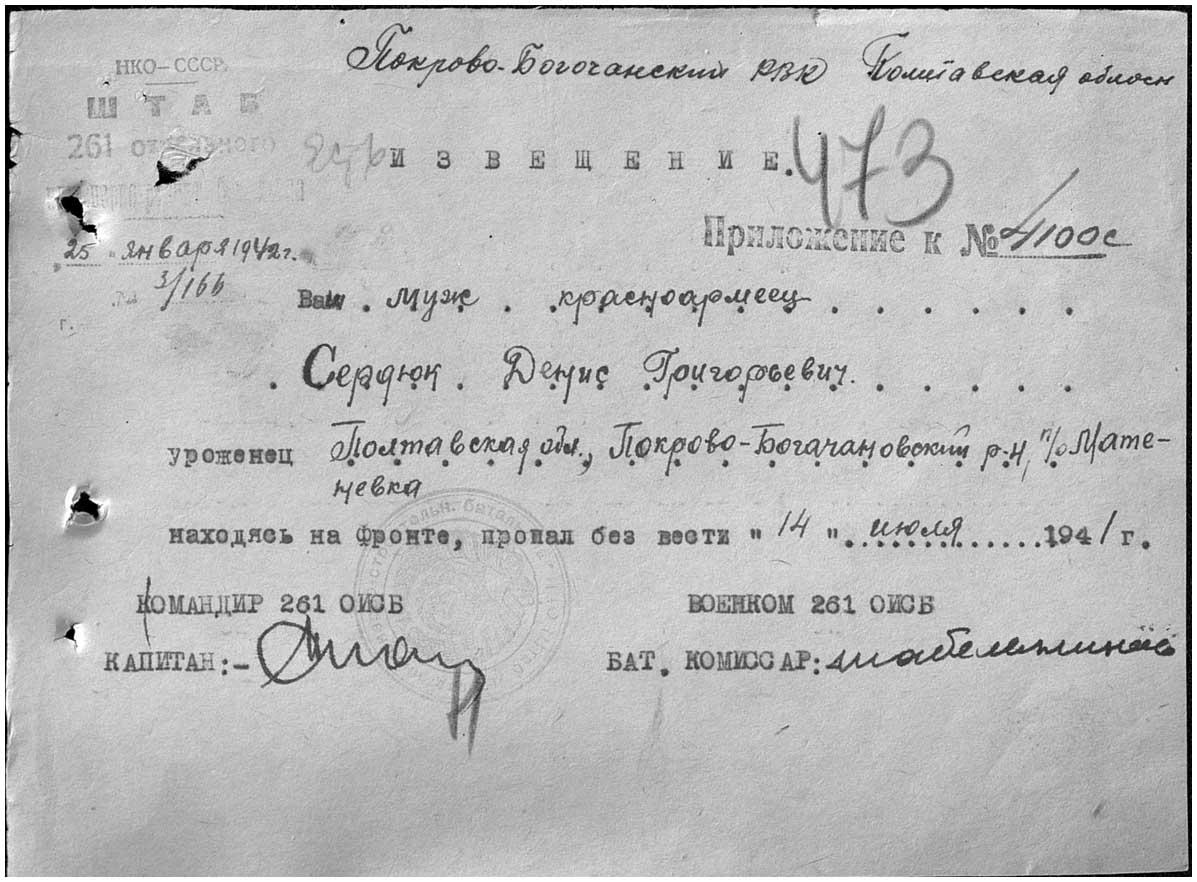 Покрово-Богочанский РВК Полтавская област
НКО-СССР.
ШТАБ
261 отдельного
ИЗВЕЩЕНИЕ.
473
Приложение к № 4100с
"25" января 1942г.
№ 3/166
г.
Ваш . муж . красноармеец . . . . . .
. Сердюк . Денис Григорьевич. . . . . .
уроженец Полтавская обл., Покрово-Богачановский р-н, п/о Мате-
невка
находясь на фронте, пропал без вести " 14 ". июля 1941 г.
КОМАНДИР 261 ОИСБ
ВОЕНКОМ 261 ОИСБ
КАПИТАН:-
БАТ. КОМИССАР: